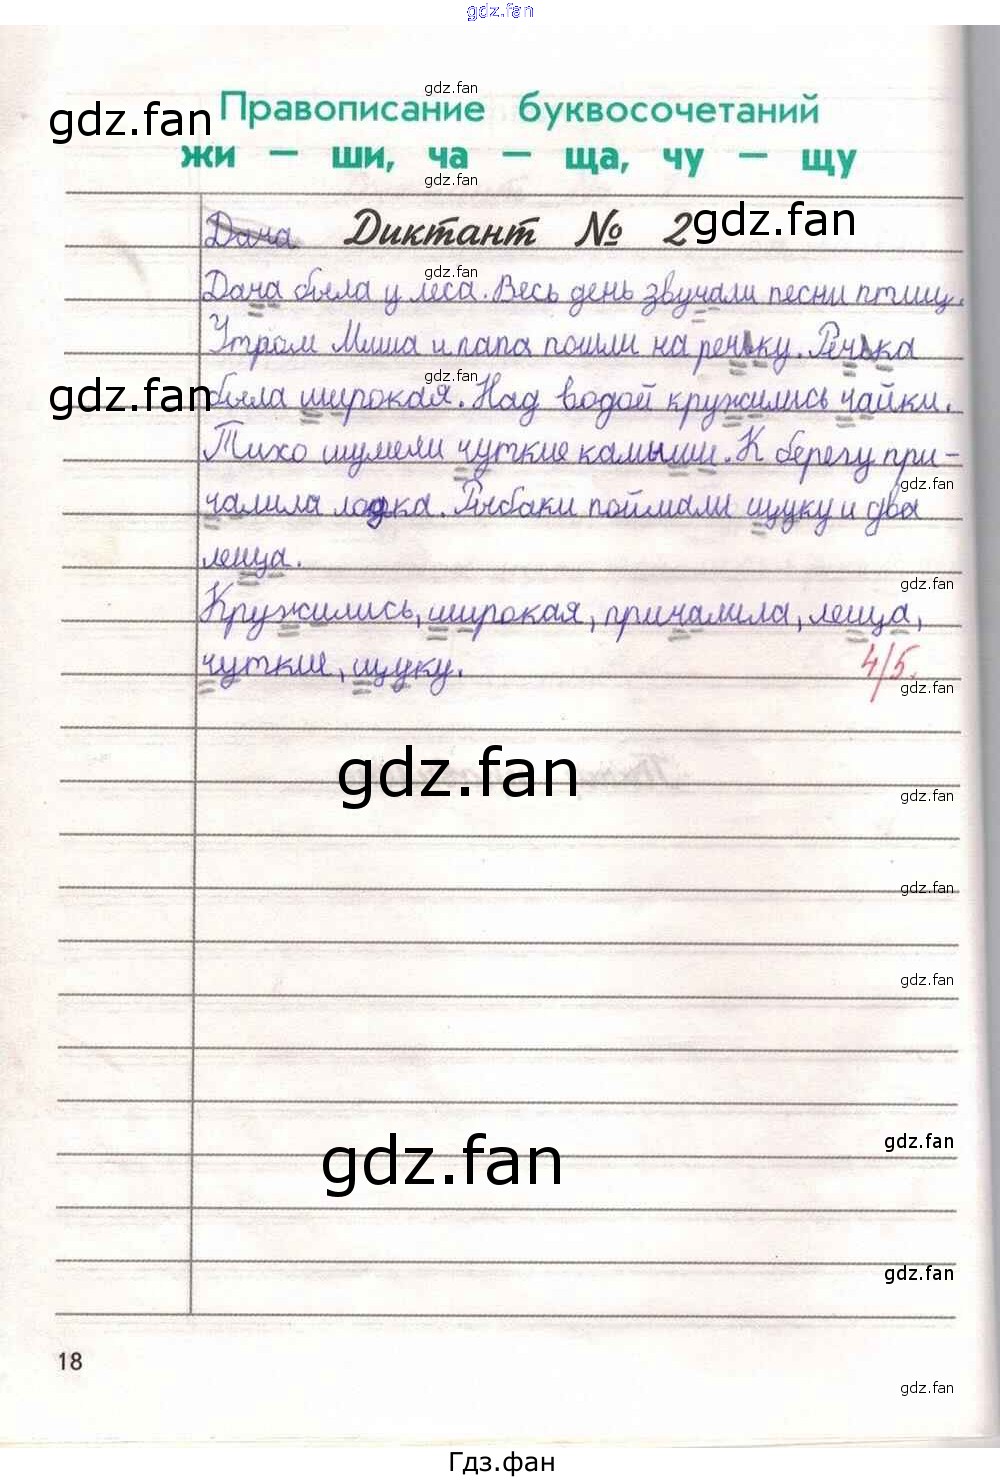 gdz.fan
gdz.fan
gdz.fan Правописание буквосочетаний
жи — ши, ча — ща, чу — щу
gdz.fan
Дача Диктант № 2 gdz.fan
gdz.fan
Дача была у леса. Весь день звучали песни птиц.
Утром Миша и папа пошли на речку. Речка
gdz.fan
gdz.fan была широкая. Над водой кружились чайки.
Тихо шумели чуткие камыши. К берегу при-
gdz.fan
чалила лодка. Рыбаки поймали щуку и два
леща.
gdz.fan
Кружились, широкая, причалила, леща,
чуткие, щуку. 4/5.
gdz.fan
gdz.fan
gdz.fan
gdz.fan
gdz.fan
gdz.fan
gdz.fan
gdz.fan
18
gdz.fan
Гдз.фан